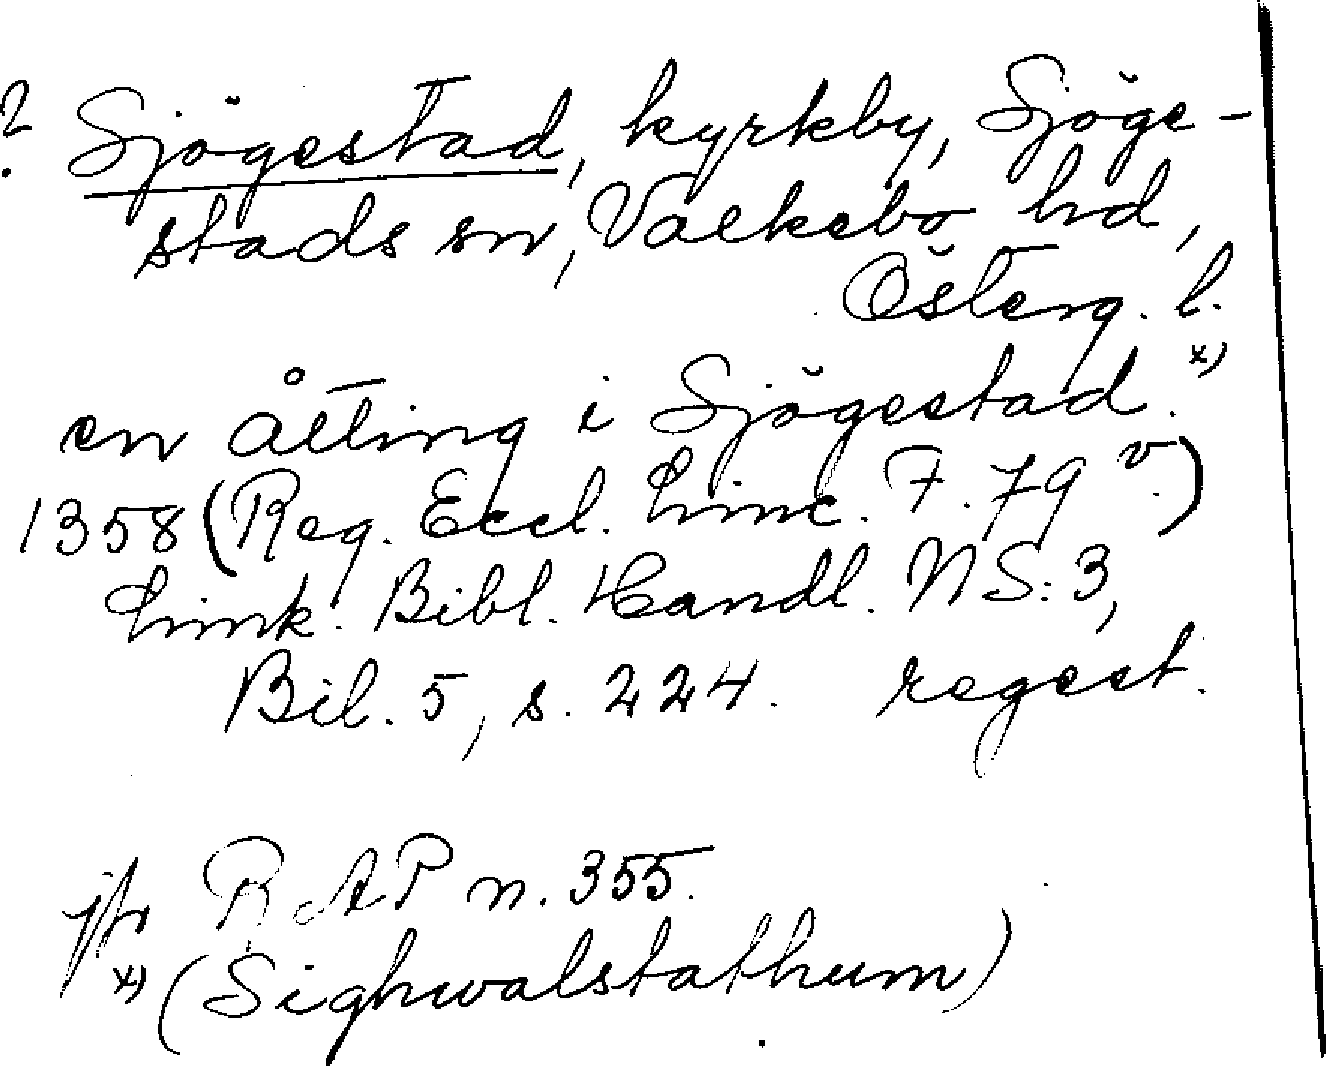 ? Sjögestad, kyrkby, Sjöge-
stads sn, Valkebo hd,
Österg. l.
en åtting i Sjögestad. x)
1358 (Reg. Eccl. Linc. F. 79 v.)
Link. Bibl. Handl. NS: 3,
Bil. 5, s. 224. regest.
jfr RAP n. 355.
x) (Sighwalstathum)